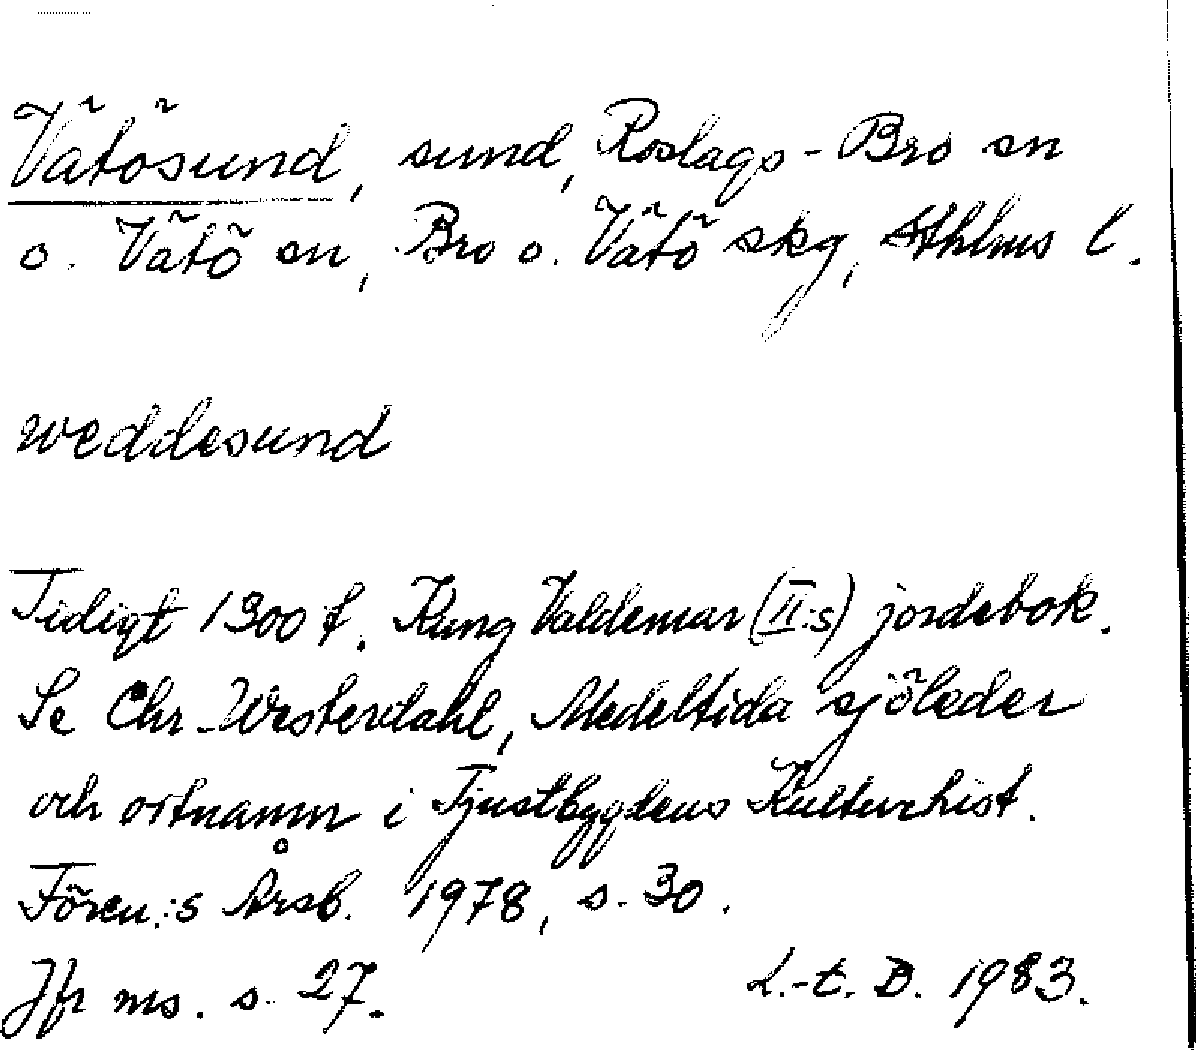 Vätösund, sund, Roslags-Bro sn
o. Vätö sn, Bro o. Vätö skg, Sthlms l.
weddesund
Tidigt 1300 t. Kung Valdemar (II:s) jordebok.
Se Chr. Westerdahl, Medeltida sjöleder
och ortnamn i Tjustbygdens Kulturhist.
Fören.:s Årsb. 1978, s. 30.
Jfr ms. s. 27. L.-t. D. 1983.